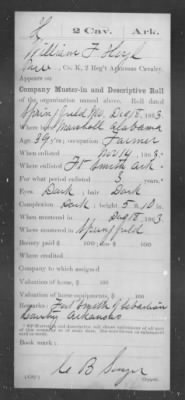 H 2 Cav. Ark.
William F. High
Co. K, 2 Reg't Arkansas Cavalry.
Appears on
Company Muster-in and Descriptive Roll
of the organization named above. Roll dated
Springfield Mo. Dec 18, 1863
Where born Marshall Alabama
Age 39 y'rs; occupation Farmer
When enlisted Nov 14, 1863
Where enlisted Ft Smith Ark.
For what period enlisted 3 years.
Eyes Dark; hair Dark
Complexion Dark; height 5 ft. 10 in.
When mustered in Dec 18, 1863
Where mustered in Springfield
Bounty paid $ 100; due $ 100
Where credited
Company to which assigned
Valuation of horse, $ 100
Valuation of horse equipments, $ 100
Remarks: Fort Smith Sebastian
County Arkansas
Book mark:
Copyist.